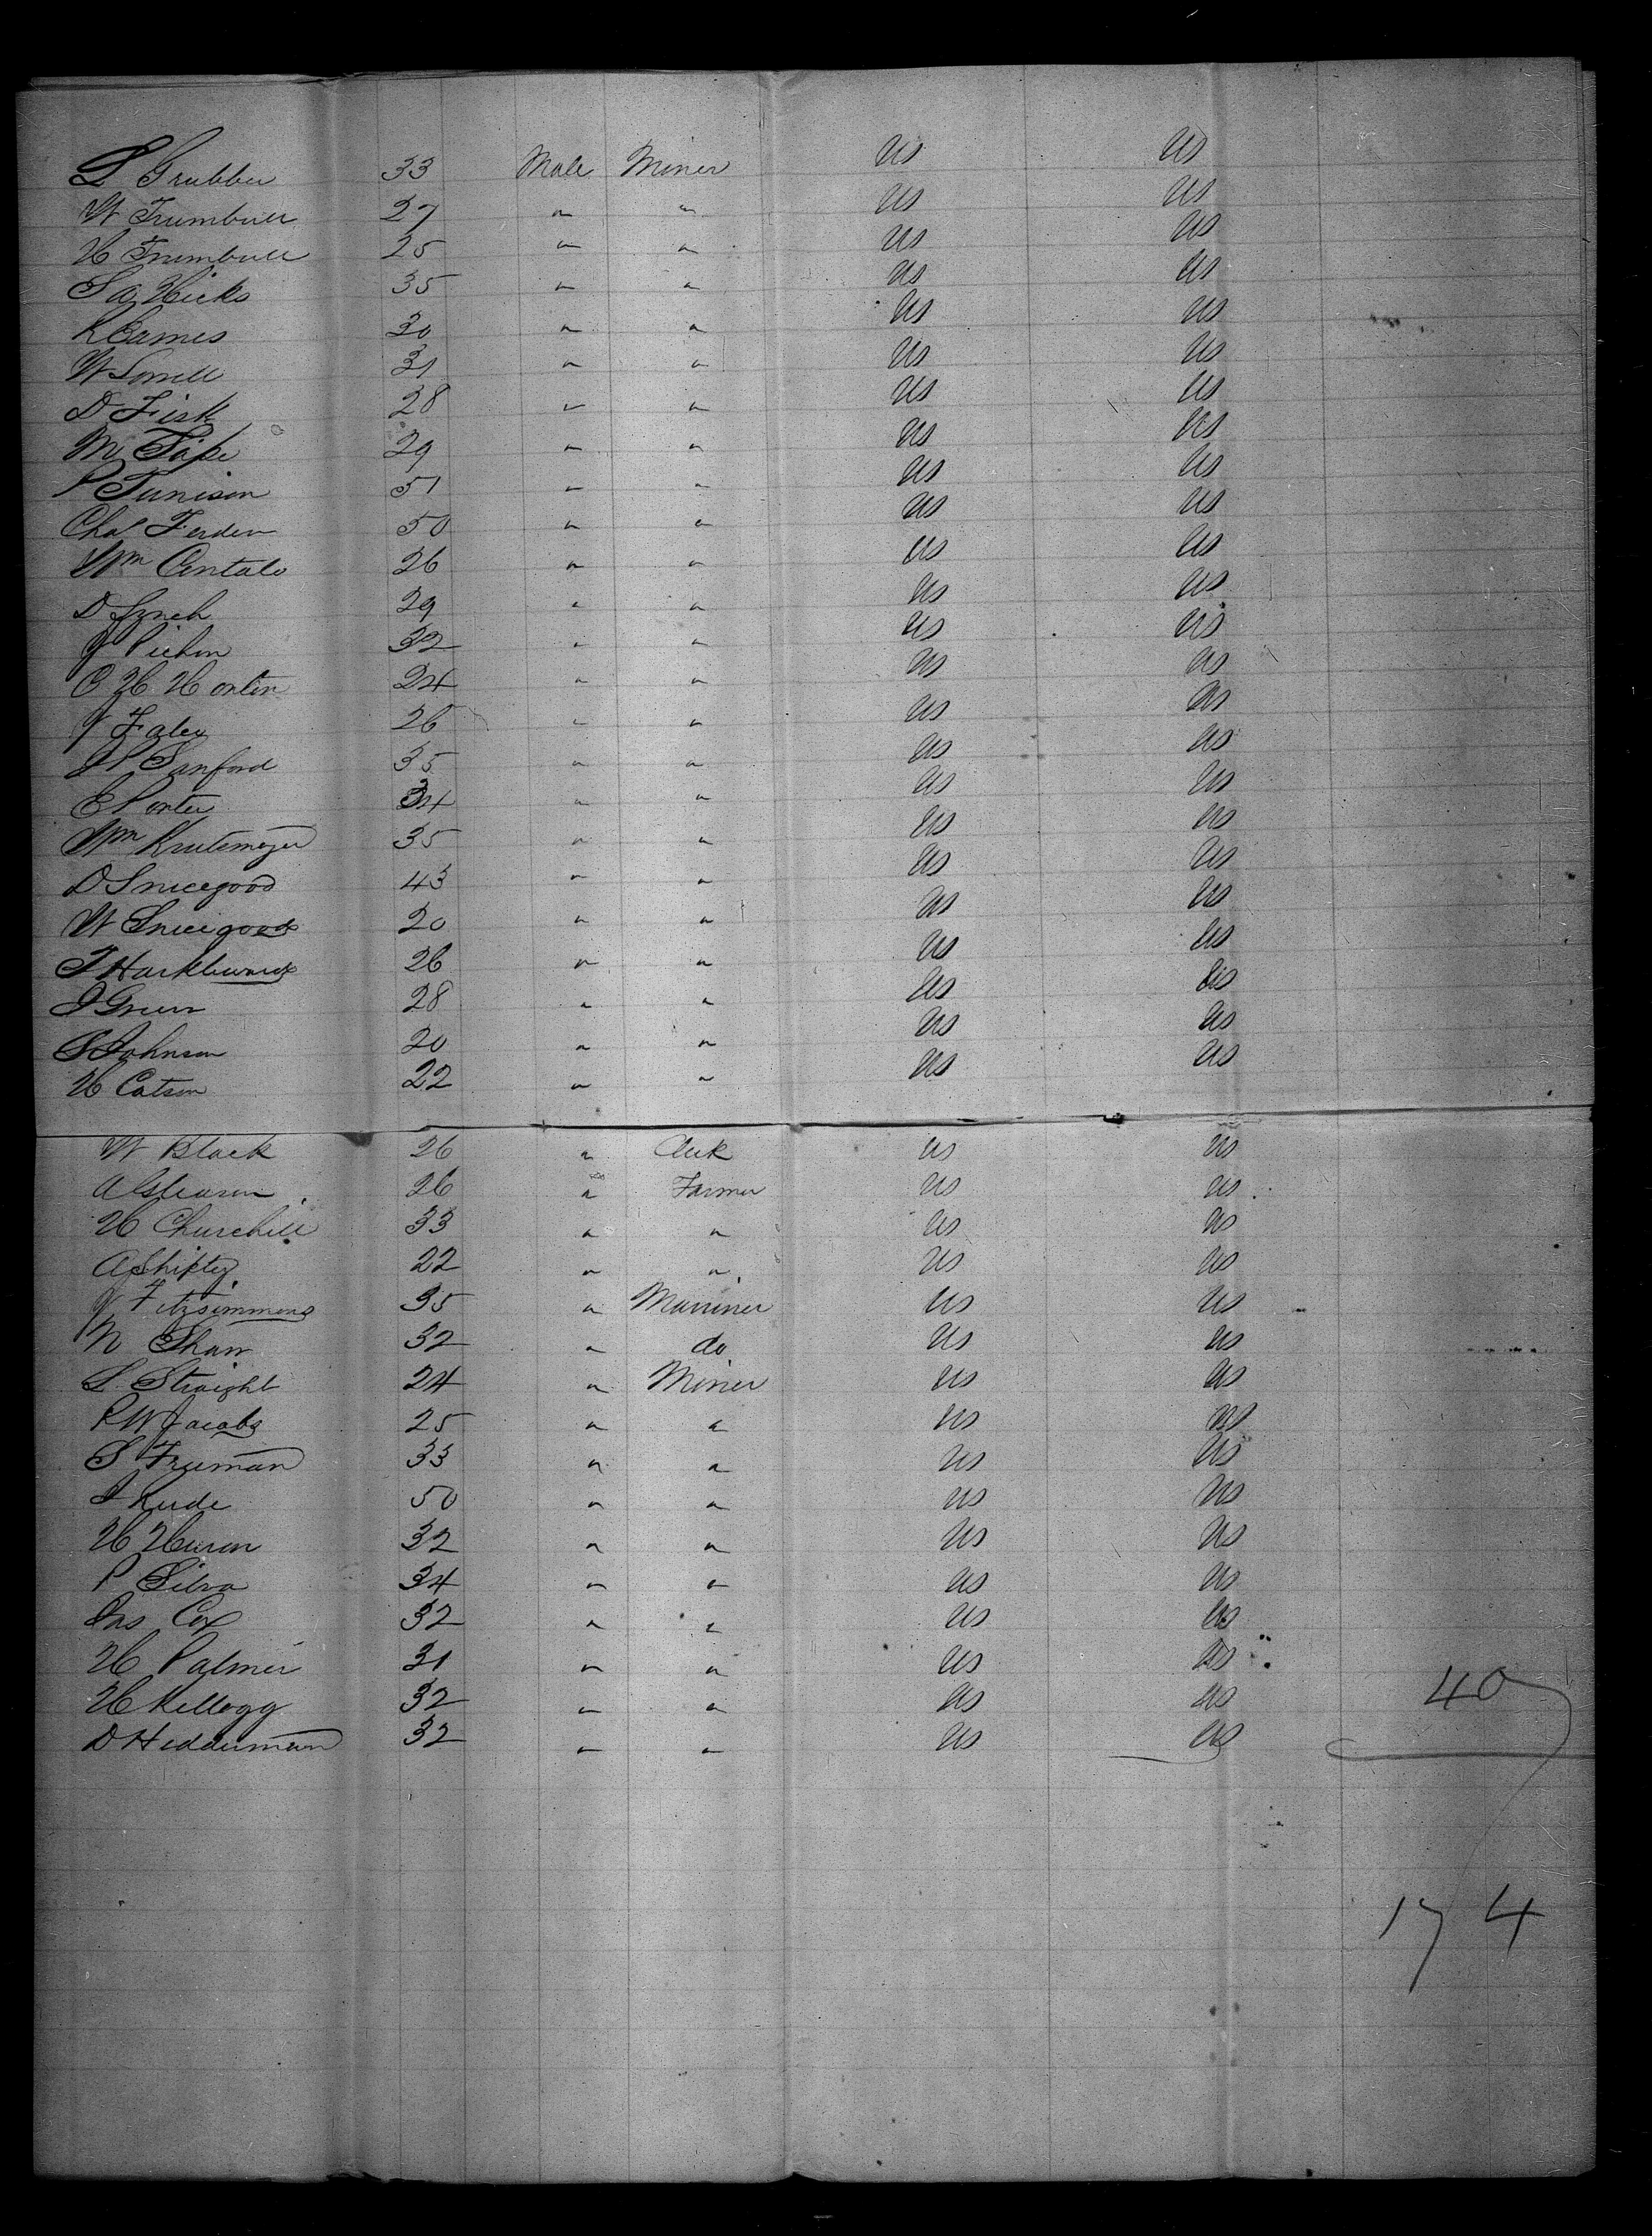 L Grubber 33 Male Miner US US
W Trumbull 27 " " US US
H Trumbull 25 " " US US
S A Hicks 35 " " US US
R Barnes 30 " " US US
W Sorrell 31 " " US US
D Fisk 28 " " US US
M Pape 29 " " US US
P Tunison 51 " " US US
Cha' Ferden 50 " " US US
Wm 26 " " US US
D Lynch 29 " " US US
J Pichon 32 " " US US
O H Horton 24 " " US US
J Foley 26 " " US US
J P Sanford 35 " " US US
E Porter 34 " " US US
Wm Krutemeyer 35 " " US US
D Snicegood 43 " " US US
W Snicegood 20 " " US US
T 26 " " US US
J Green 28 " " US US
S Johnson 20 " " US US
H Catson 22 " " US US
W Black 26 " Clerk US US
A Gleason 26 " Farmer US US
H Churchill 33 " " US US
A Shipley 22 " " US US
J Fitzsimmons 35 " Marriner US US
N Shaw 32 " do US US
L Straight 24 " Miner US US
R W Jacobs 25 " " US US
S Freeman 33 " " US US
J Rude 50 " " US US
H Huron 32 " " US US
P Silva 34 " " US US
Jno Cox 32 " " US US
H Palmer 31 " " US US
H Kellogg 32 " " US US 40
D Hedderman 32 " " US US
174